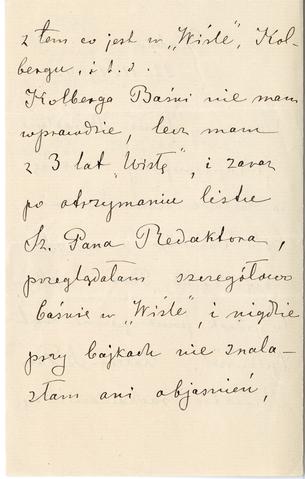 z tem co jest w „Wiśle", Kol-
bergu, i t. d.
Kolberga Baśni nie mam
wprawdzie, lecz mam
z 3 lat „Wisłę", i zaraz
po otrzymaniu listu
Sz. Pana Redaktora,
przeglądałam szczegółowo
baśnie w „Wiśle", i nigdzie
przy bajkach nie znala-
złam ani objaśnień,